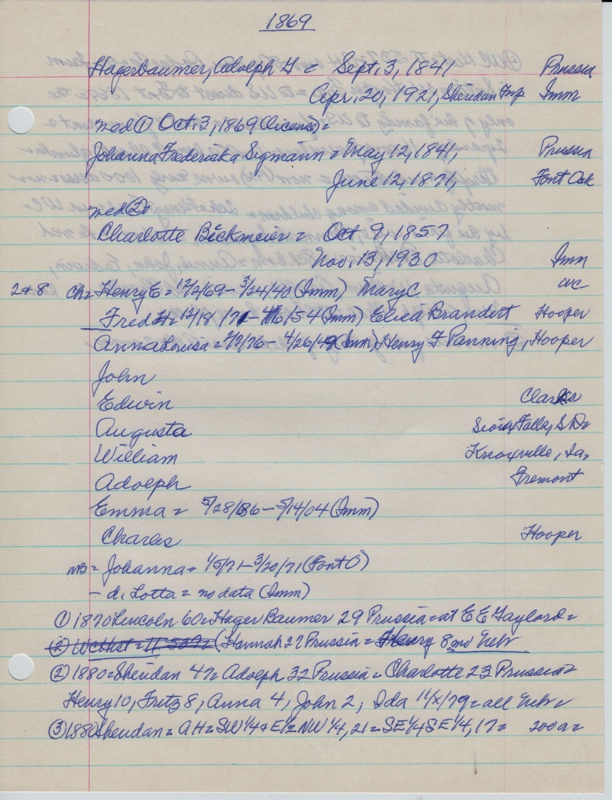 1869
Hagerbaumer, Adolph H = Sept. 3, 1841 Prussia
Apr. 20, 1921, Sheridan Twp Imm
med ① Oct. 3, 1869 (License) =
Johanna Frederieka Sigmann = May 12, 1841, Prussia
June 12, 1871, Font Oak
med ② =
Charlotte Bëckmeier = Oct 9, 1857
Nov. 13, 1930 Imm
2 & 8 Ch = Henry E = 12/2/69 - 3/24/40 (Imm) Mary C WC
Fred H = 12/18/71 - /6/54 (Imm) Elica Brandert Hooper
Anna Louisa = /76 - 4/26/49 (Imm) Henry F Panning, Hooper
John
Edwin Clarks
Augusta Sioux Falls, S Da
William Knoxville, Ia,
Adolph Fremont
Emma = 5/28/86 - 5/14/04 (Imm)
Charles Hooper
MB = Johanna = 1/5/71 - 3/20/71 (Font O)
- d. Lotta = no data (Imm)
① 1870 Lincoln 60 = Hager Baumer 29 Prussia = at E E Gaylord =
(Hannah 27 Prussia = Henry 8 Nebr
② 1880 = Sheridan 47 = Adolph 32 Prussia = Charlotte 23 Prussia =
Henry 10, Fritz 8, Anna 4, John 2, Ida 11/X/79 = all Nebr =
③ 1880 Sheridan = AH = SW 1/4 & E 1/2 NW 1/4, 21 = SE 1/4 SE 1/4, 17 = 200 a =